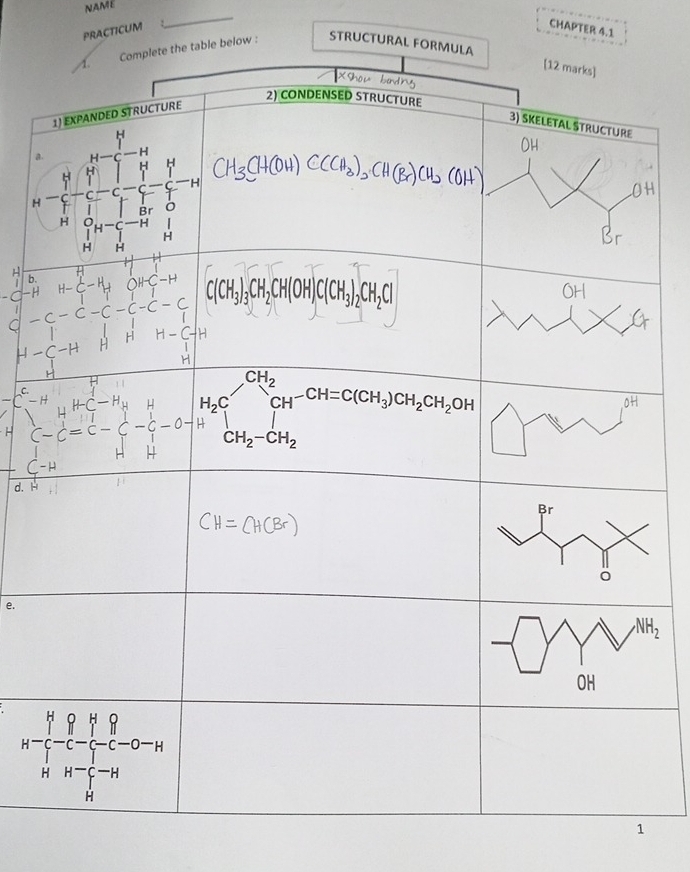 NAME
PRACTICUM :
CHAPTER 4.1
1. Complete the table below :
STRUCTURAL FORMULA
[12 marks]
x show bonding
1) EXPANDED STRUCTURE
2) CONDENSED STRUCTURE
3) SKELETAL STRUCTURE
a.
H
H-C-H
H H H H
H-C-C-C-C-C-H
H O Br O
H-C-H
H H H
CH3CH(OH) C(CH3)2 CH(Br)CH2 (OH)
OH
OH
Br
b.
H-C-H OH-C-H
-C-C-C-C-C-C
H-C-H H H H-C-H
H H
C(CH3)3CH2CH(OH)C(CH3)2CH2Cl
OH
c.
H
H H-C-H H H
C-C=C-C-C-O-H
H H
C-H
H
CH2
H2C CH-CH=C(CH3)CH2CH2OH
CH2-CH2
OH
d.
CH=CH(Br)
Br
O
e.
NH2
OH
H O H O
H-C-C-C-C-O-H
H H-C-H
H
1